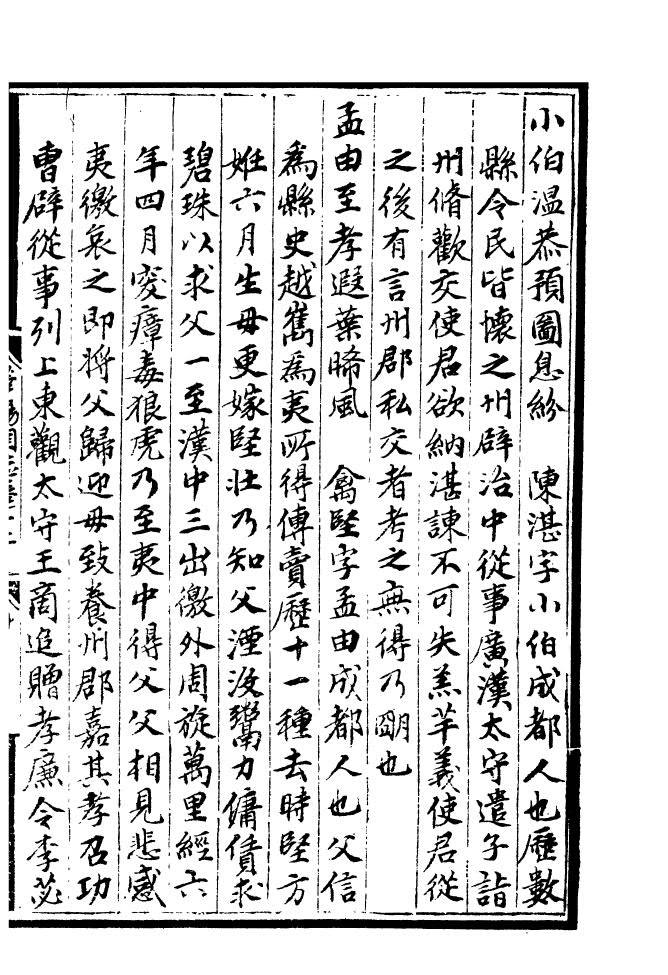 小伯温恭預圖息紛　陳湛字小伯成都人也歷數
縣令民皆懷之州辟治中從事廣漢太守遣子詣
州脩歡交使君欲納湛諫不可失羔羊義使君從
之後有言州郡私交者考之無得乃明也
孟由至孝遐葉晞風　禽堅字孟由成都人也父信
為縣吏越嶲為夷所得傳賣歷十一種去時堅方
姙六月生母更嫁堅壯乃知父湮沒鬻力傭賃求
碧珠以求父一至漢中三出徼外周旋萬里經六
年四月突瘴毒狼虎乃至夷中得父父相見悲感
夷徼哀之即將父歸迎母致養州郡嘉其孝召功
曹辟從事列上東觀太守王商追贈孝廉令李苾